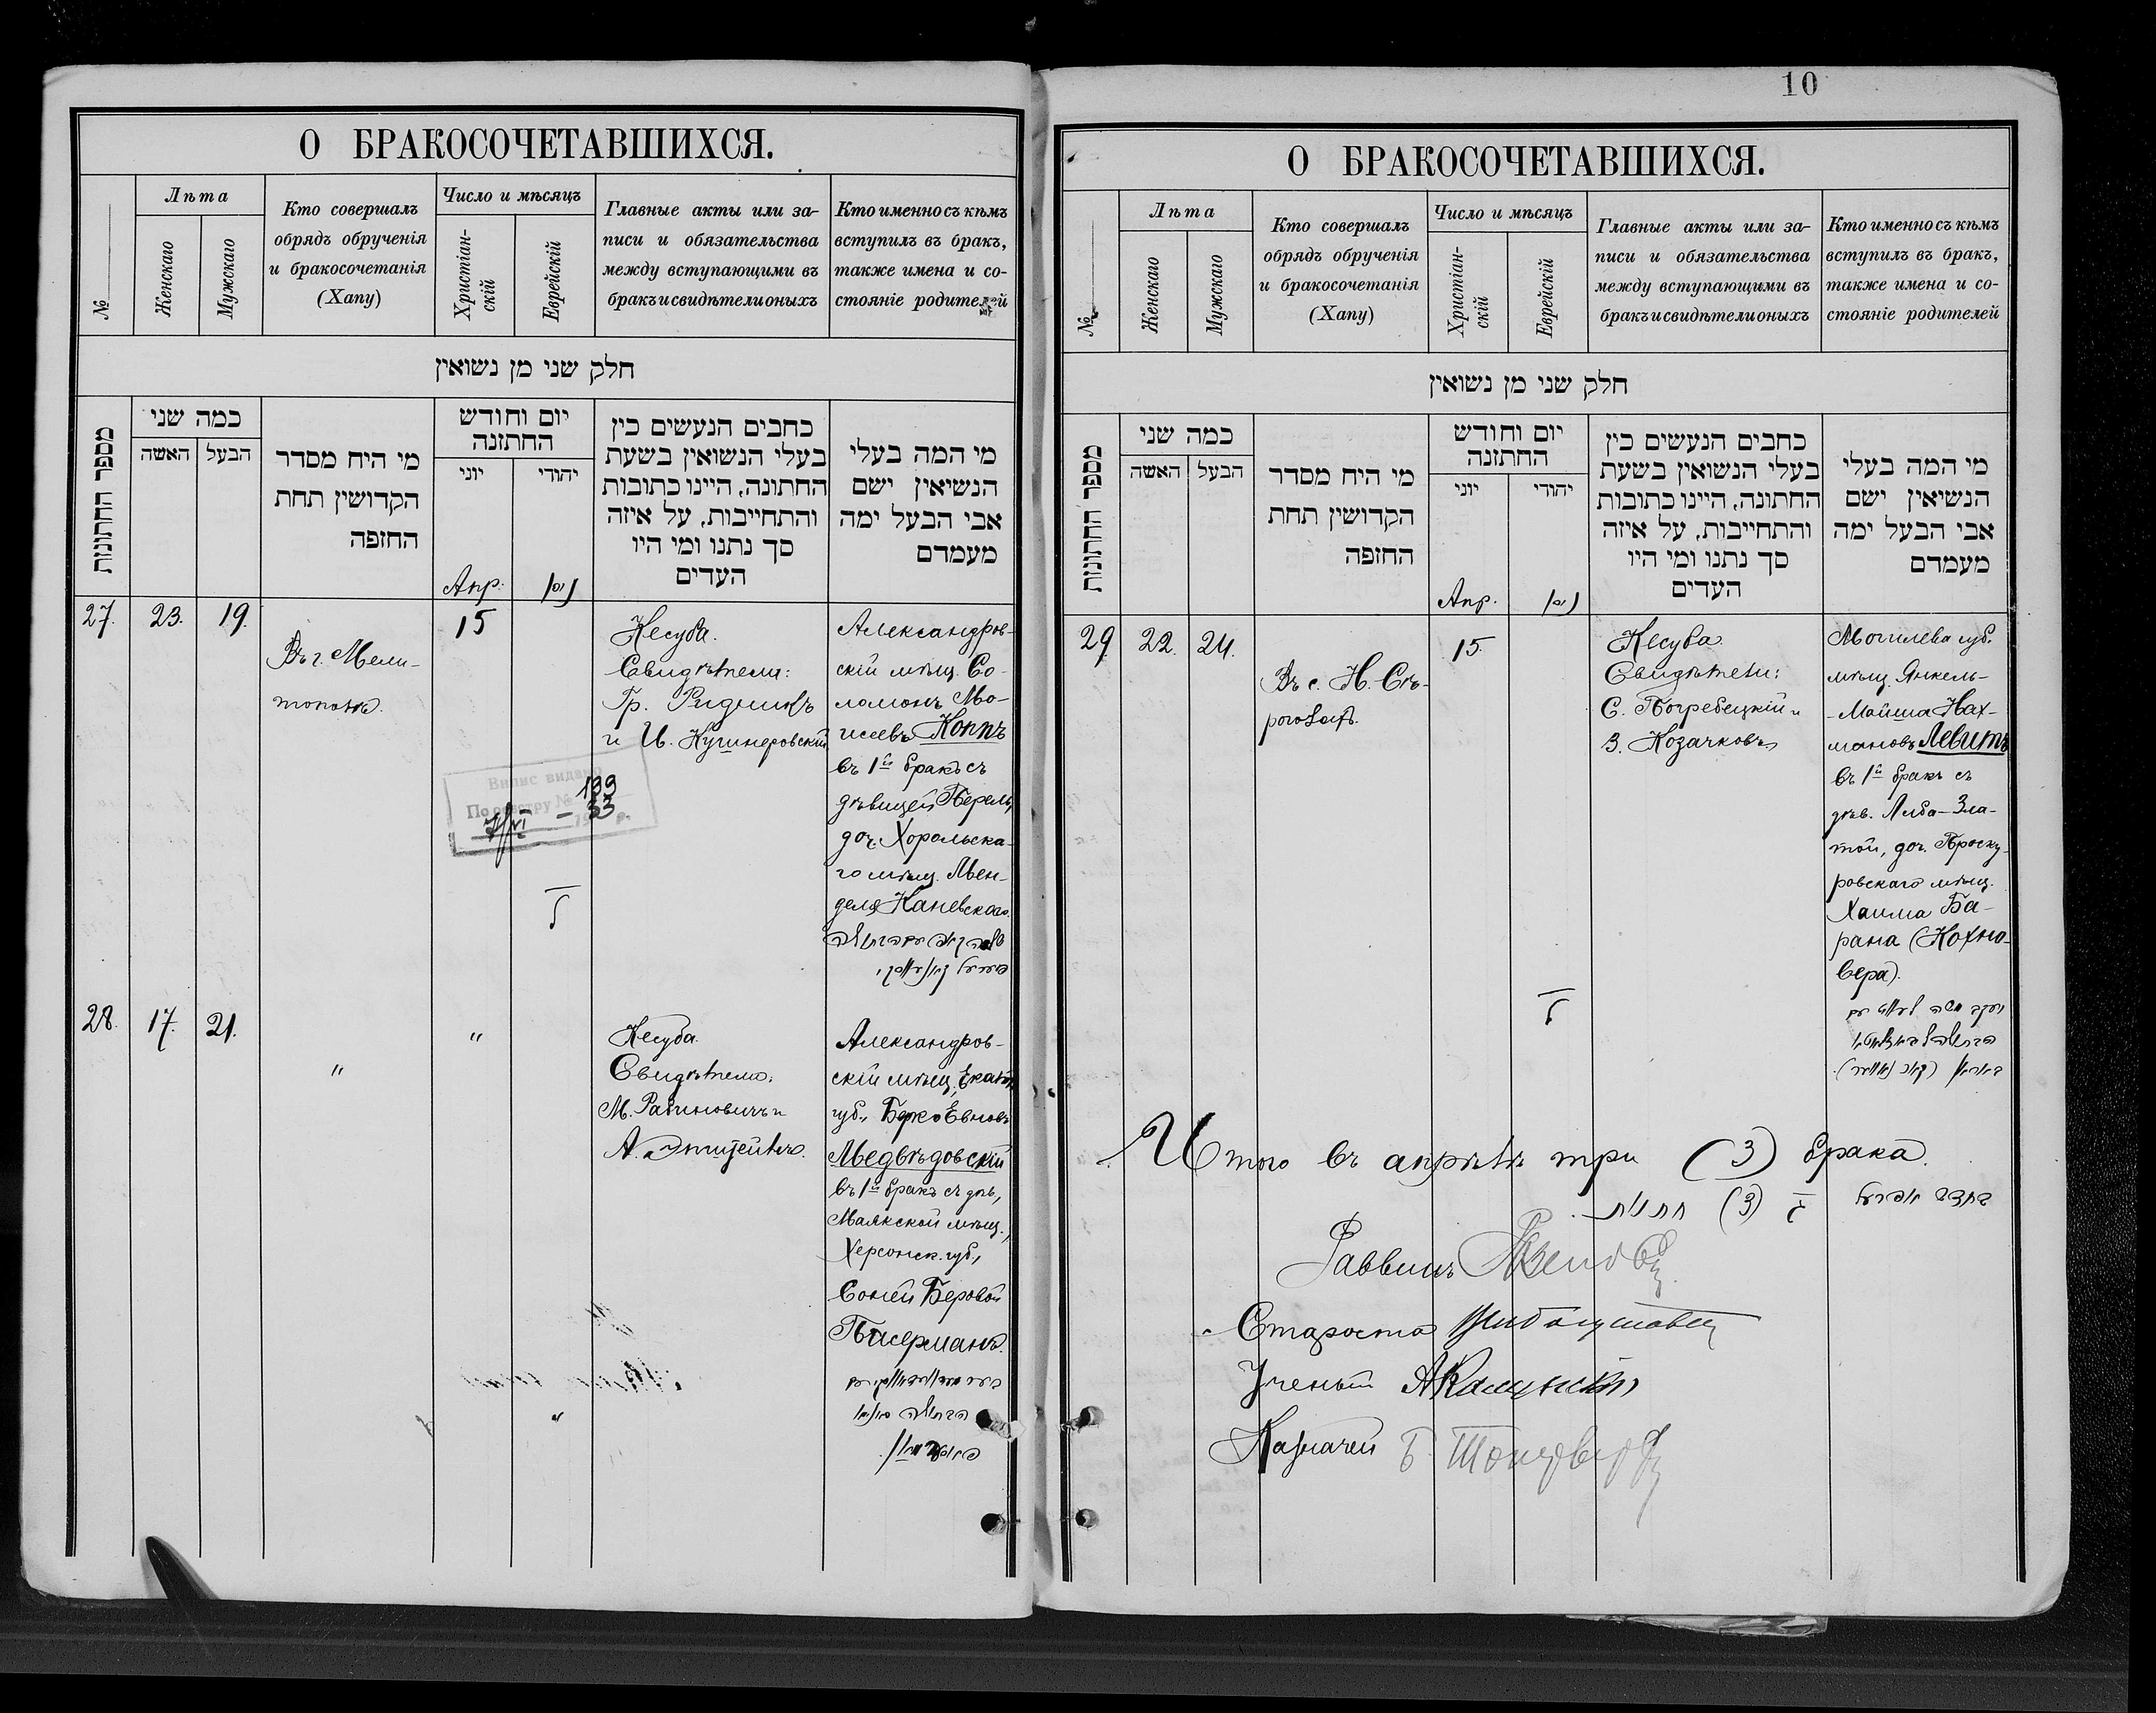 О БРАКОСОЧЕТАВШИХСЯ.
№
Лѣта
Женскаго
Мужскаго
Кто совершалъ
обрядъ обрученія
и бракосочетанія
(Хапу)
Число и мѣсяцъ
Христіан-
скій
Еврейскій
Главные акты или за-
писи и обязательства
между вступающими въ
бракъ и свидѣтели оныхъ
Кто именно съ кѣмъ
вступилъ въ бракъ,
также имена и со-
стояніе родителей
חלק שני מן נשואין
מספר החתונות
כמה שני
האשה
הבעל
מי היח מסדר
הקדושין תחת
החזפה
יום וחודש
החתזנה
יוני
יהודי
Апр.
ניסן
כחבים הנעשים כין
בעלי הנשואין בשעת
החתונה, היינו כתובות
והתחייבות, על איזה
סך נתנו ומי היו
העדים
מי המה בעלי
הנשיאין ישם
אבי הבעל ימה
מעמדם
27. 23. 19.
Въ г. Мели-
тополѣ.
15
Кесуба.
Свидѣтели:
Гр. Ридникъ
и И. Кушнеровскій
Александров-
скій мѣщ. Со-
ломонъ Мо-
исеевъ Коппъ
въ 1й бракъ съ
дѣвицей Перель,
доч. Хорольска-
го мѣщ. Мен-
деля Каневскаго.
Випис видано
По реєстру № 199
7/VI – 33 р.
28. 17. 21.
"
"
Кесуба.
Свидѣтели:
М. Рабиновичъ и
А. Эпштейнъ.
Александров-
скій мѣщ., Екат.
губ., Берко Евновъ
Медвѣдовскій
въ 1й бракъ съ дѣв.,
Маякской мѣщ.,
Херсонск. губ.,
Соней Беровой
"
О БРАКОСОЧЕТАВШИХСЯ.
10
№
Лѣта
Женскаго
Мужскаго
Кто совершалъ
обрядъ обрученія
и бракосочетанія
(Хапу)
Число и мѣсяцъ
Христіан-
скій
Еврейскій
Главные акты или за-
писи и обязательства
между вступающими въ
бракъ и свидѣтели оныхъ
Кто именно съ кѣмъ
вступилъ въ бракъ,
также имена и со-
стояніе родителей
חלק שני מן נשואין
מספר החתונות
כמה שני
האשה
הבעל
מי היח מסדר
הקדושין תחת
החזפה
יום וחודש
החתזנה
יוני
יהודי
Апр.
ניסן
כחבים הנעשים כין
בעלי הנשואין בשעת
החתונה, היינו כתובות
והתחייבות, על איזה
סך נתנו ומי היו
העדים
מי המה בעלי
הנשיאין ישם
אבי הבעל ימה
מעמדם
29. 22. 24.
Въ с. Н. Сѣ-
рогозахъ.
15.
Кесуба.
Свидѣтели:
С. Погребецкій и
З. Козачковъ
Могилева губ.
мѣщ. Янкель-
-Мойша Нах-
мановъ Левитъ
въ 1й бракъ съ
дѣв. Либа-Зла-
той, доч. Проску-
ровскаго мѣщ.
Хаима Ба-
рана (Кохно-
вера).
Итого въ апрѣлѣ три (3) брака.
(3)
Раввинъ
Староста
Ученый
Казначей